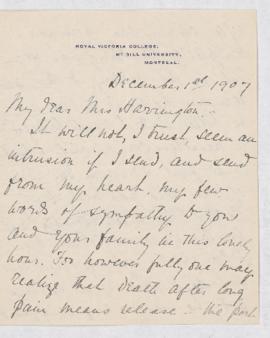 ROYAL VICTORIA COLLEGE,
McGILL UNIVERSITY,
MONTREAL.
December 1st 1907
My dear Mrs Harrington.
It will not, I trust, seem an
intrusion if I send, and send
from my heart, my few
words of sympathy to you
and your family in this lonely
hour. For however fully one may
realize that death after long
pain means release - the part